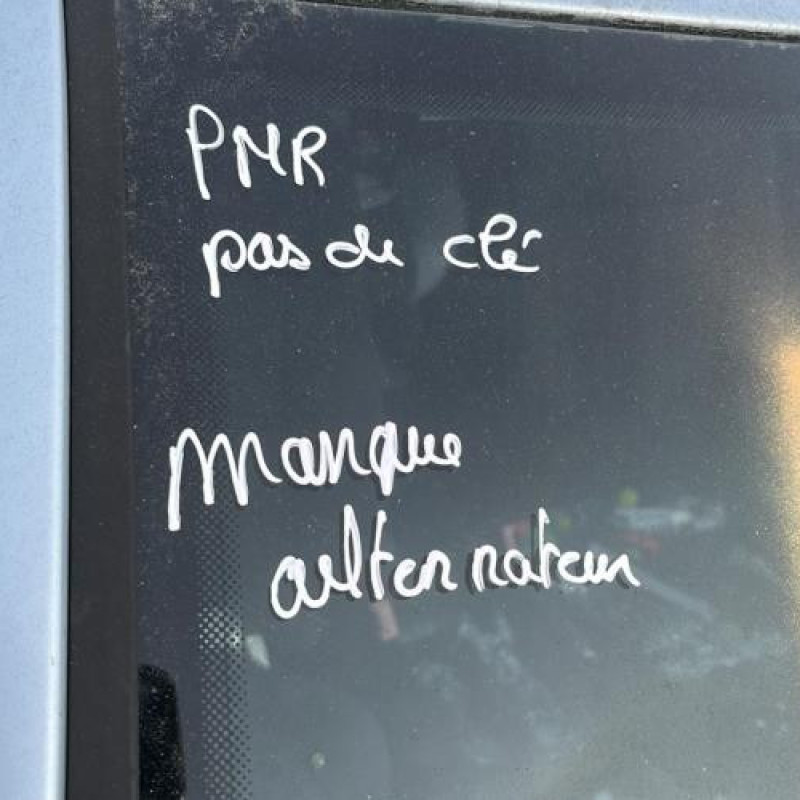 PMR
pas de clé
Manque
alternateur